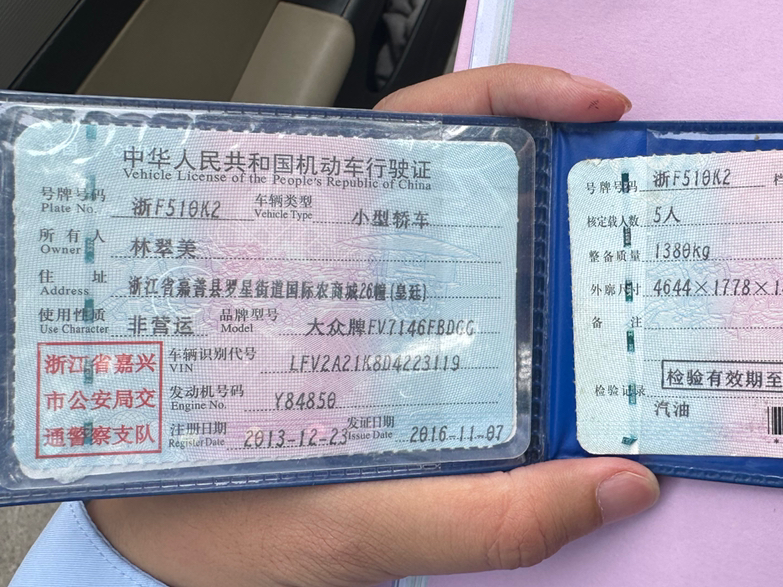 中华人民共和国机动车行驶证
Vehicle License of the People's Republic of China
号牌号码 浙F510K2 车辆类型 小型轿车
Plate No. Vehicle Type
所有人 林翠美
Owner
住址 浙江省嘉善县罗星街道国际农商城26幢(皇廷)
Address
使用性质 非营运 品牌型号 大众牌FV7146FBDGG
Use Character Model
浙江省嘉兴
市公安局交
通警察支队
车辆识别代号 LFV2A21K8D4223119
VIN
发动机号码 Y84850
Engine No.
注册日期 2013-12-23 发证日期 2016-11-07
Register Date Issue Date
号牌号码 浙F510K2
核定载人数 5人
整备质量 1380kg
外廓尺寸 4644×1778×1
备注
检验有效期至
检验记录
汽油